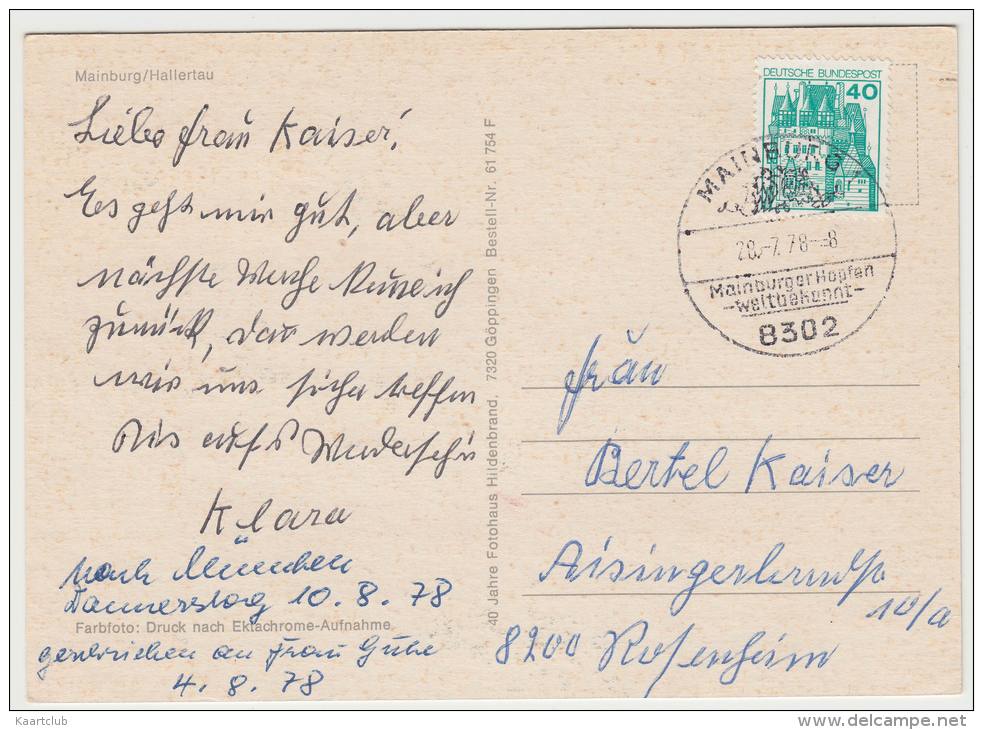 Mainburg/Hallertau
Liebe Frau Kaiser!
Es geht mir gut, aber
nächste Woche
zurück, dan werden
wir uns sicher treffen
Bis aufs Wiedersehn
Klara
nach München
Dannerstag 10.8.78
Farbfoto: Druck nach Ektachrome-Aufnahme
geschrieben an Frau
4.8.78
40 Jahre Fotohaus Hildenbrand, 7320 Göppingen Bestell-Nr. 61 754 F
DEUTSCHE BUNDESPOST
40
MAINBURG
28.-7.78--8
Mainburger Hopfen
-weltbekannt-
8302
Frau
Bertel Kaiser
10/a
8200 Rosenheim
Kaartclub
www.delcampe.net